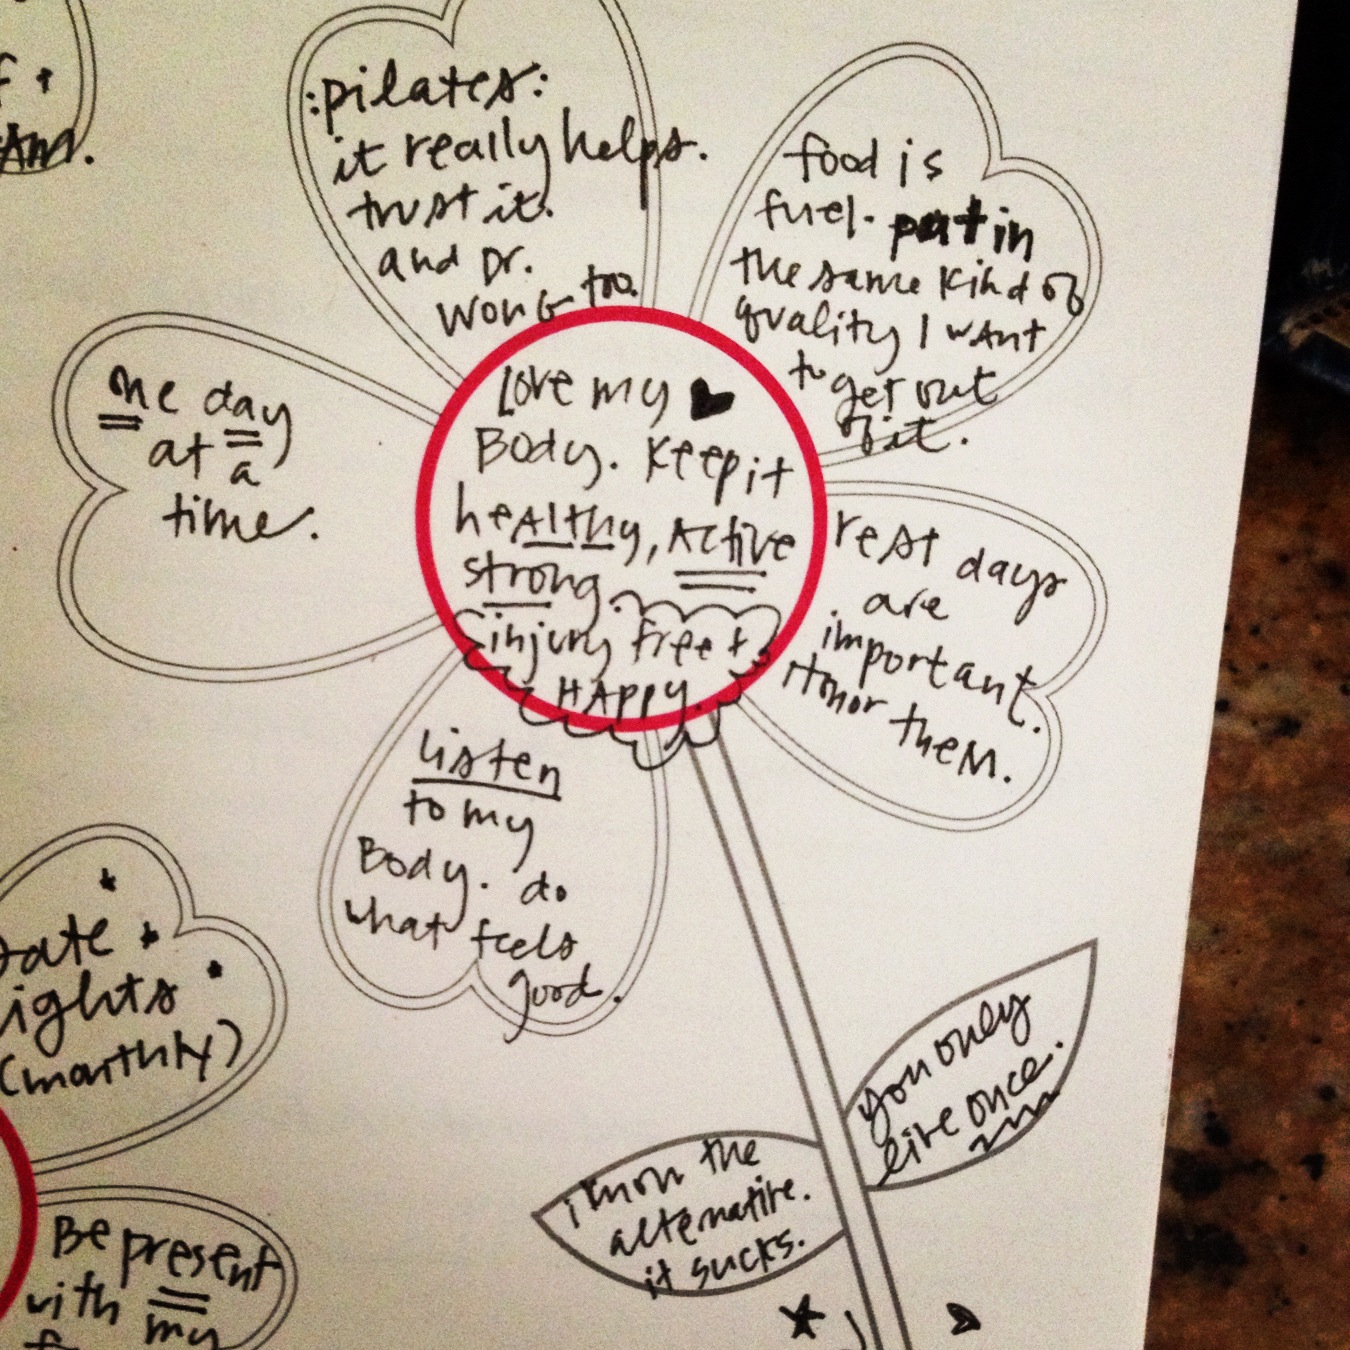 :pilates:
it really helps.
trust it.
and Dr.
Wong too.
food is
fuel. put in
the same kind of
quality I want
to get out
of it.
one day
at a
time.
Love my
Body. Keep it
heAlthy, Active
strong.
injury free +
HAppy.
rest days
are
important.
Honor theM.
listen
to my
Body. do
what feels
good.
you only
live once.
i know the
alternative.
it sucks.
ights
(monthly)
Be present
with my